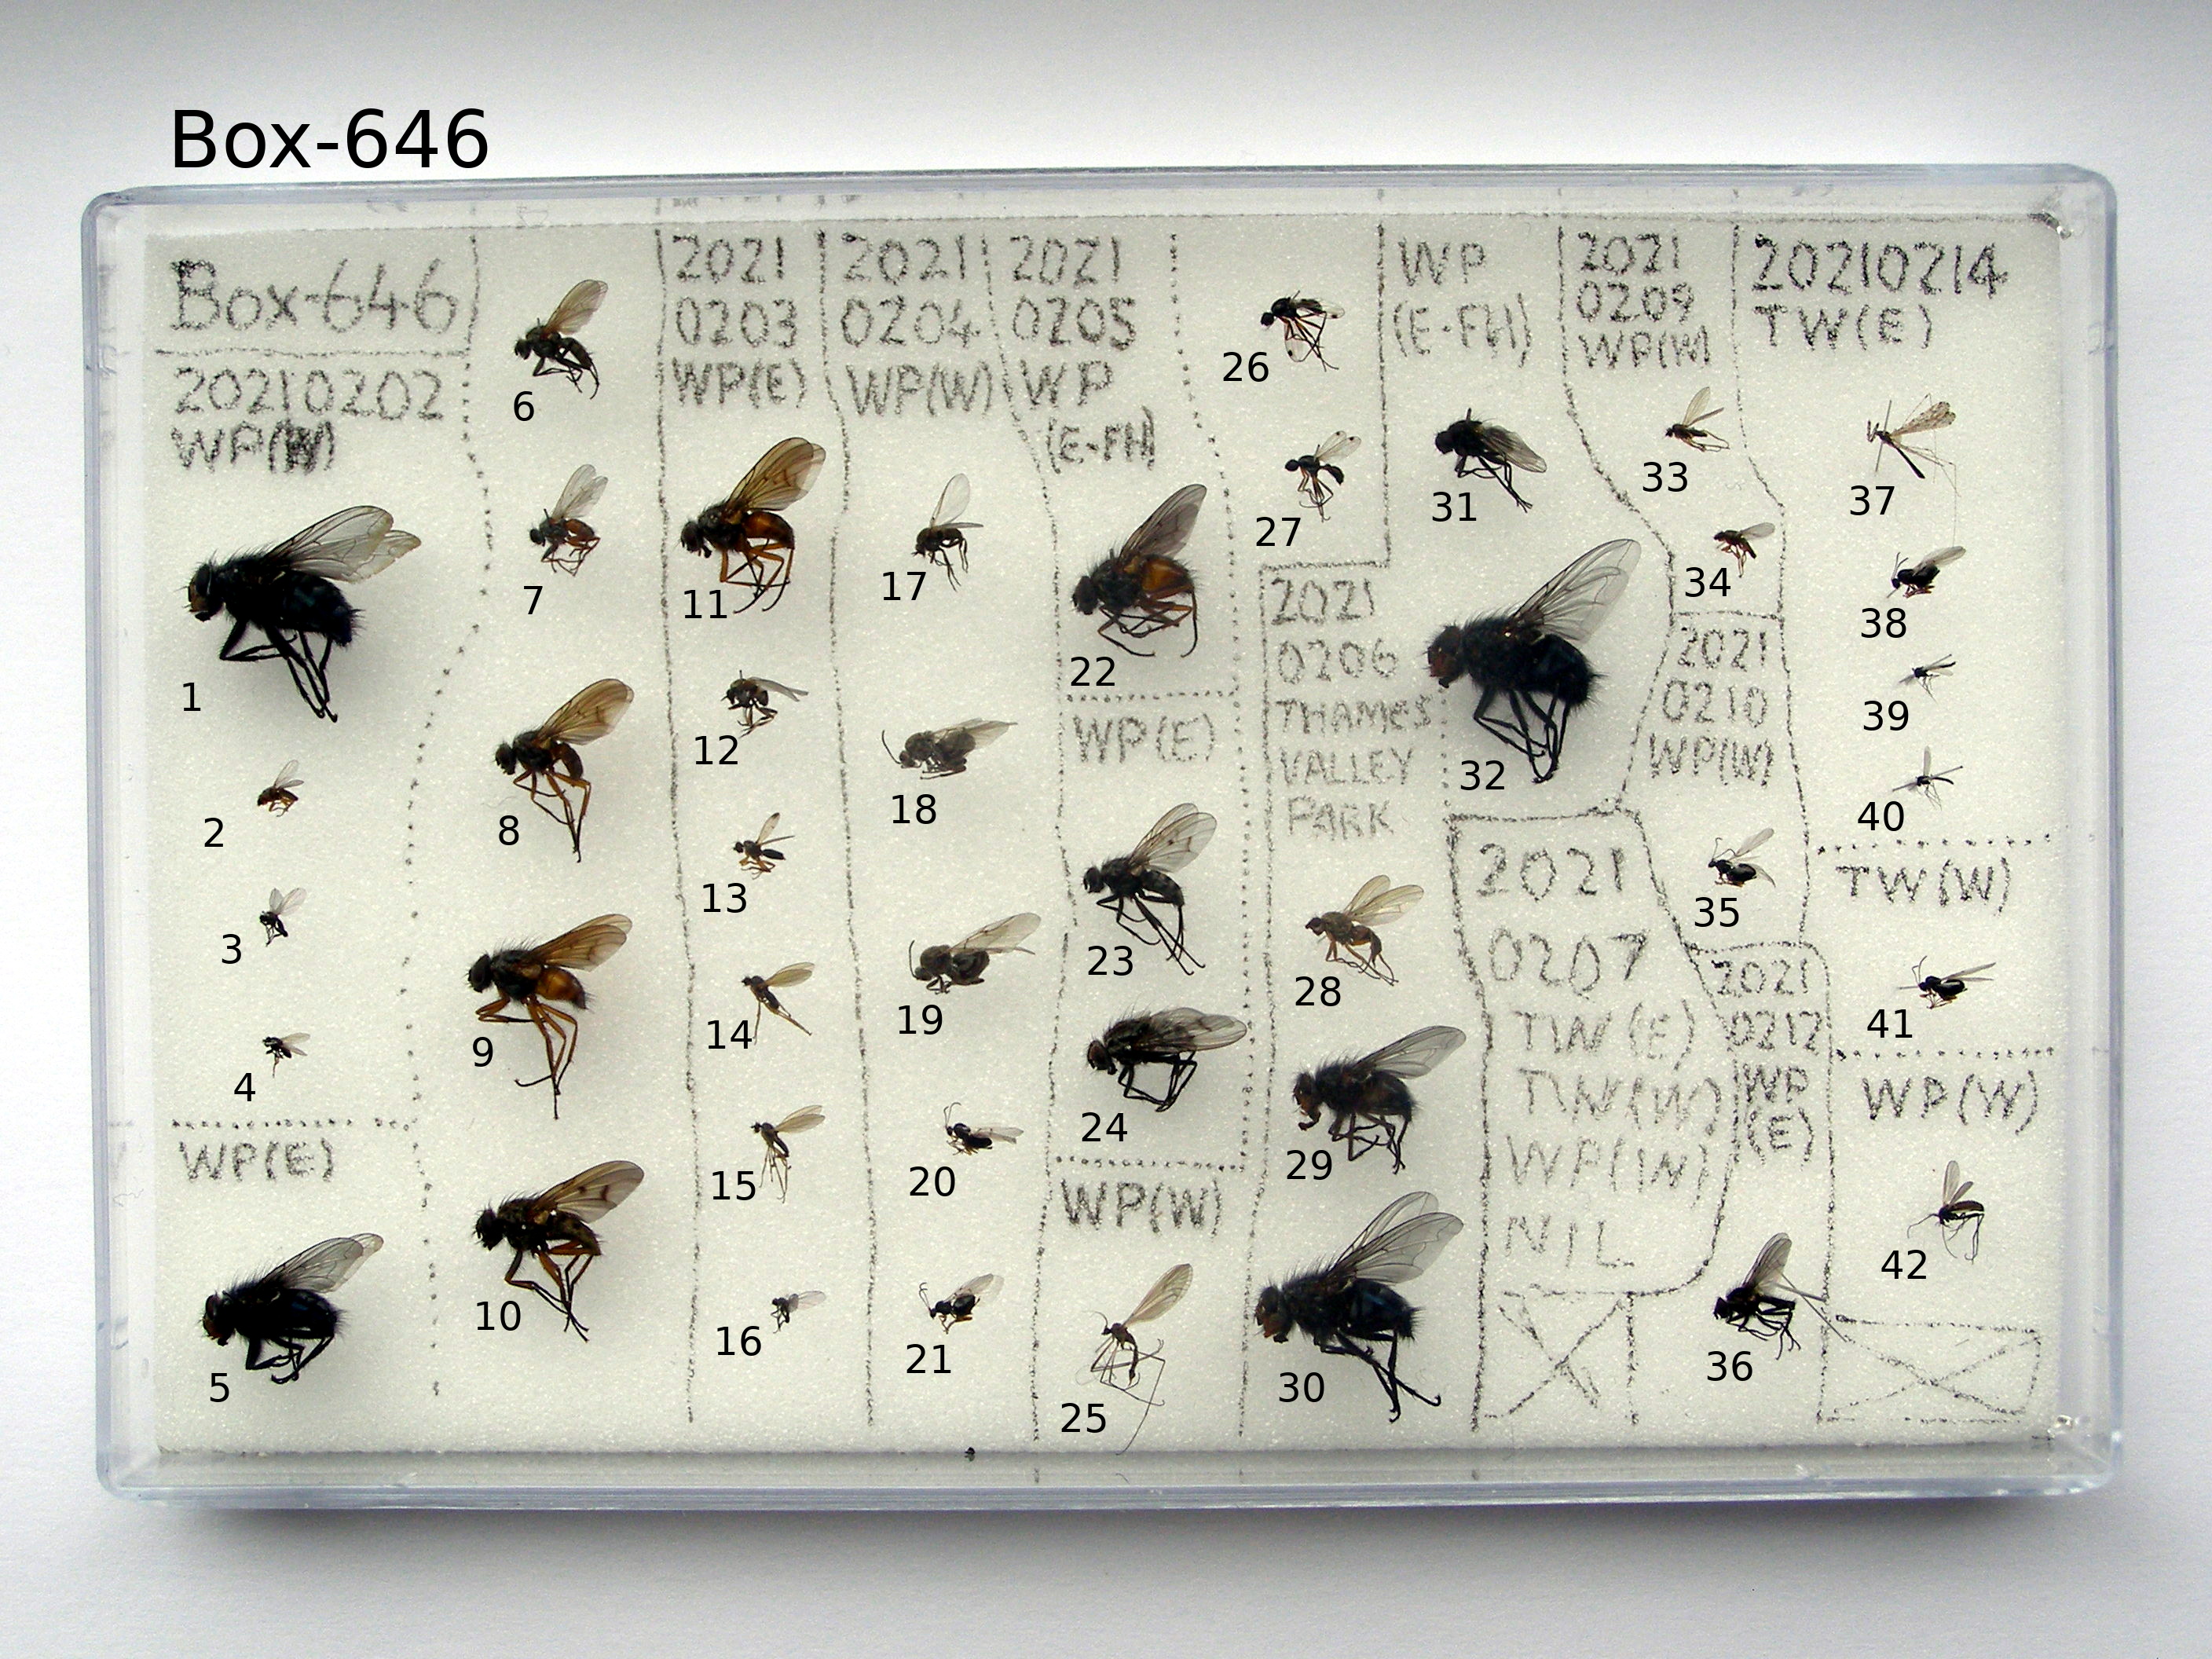 Box-646
Box-646
20210202
WP(W)
1
2
3
4
WP(E)
5
6
7
8
9
10
2021
0203
WP(E)
11
12
13
14
15
16
2021
0204
WP(W)
17
18
19
20
21
2021
0205
WP
(E-FH)
22
WP(E)
23
24
WP(W)
25
26
27
WP
(E-FH)
31
2021
0206
THAMES
VALLEY
PARK
28
29
30
32
2021
0207
TW(E)
TW(W)
WP(W)
NIL
2021
0209
WP(W)
33
34
2021
0210
WP(W)
35
2021
0212
WP
(E)
36
20210214
TW(E)
37
38
39
40
TW(W)
41
WP(W)
42